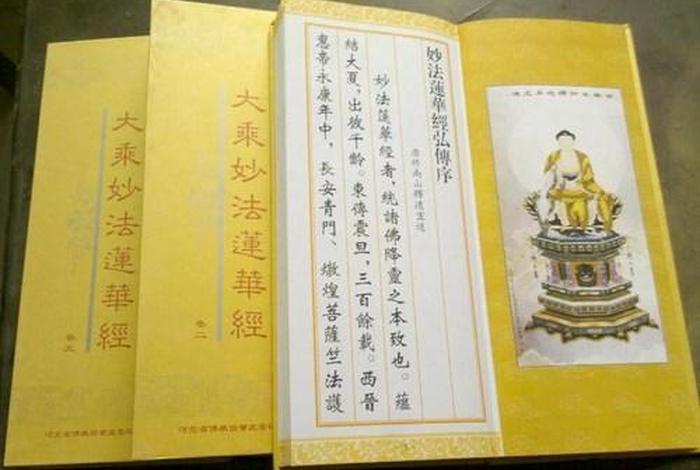 大乘妙法蓮華經
卷五
大乘妙法蓮華經
卷二
妙法蓮華經弘傳序
唐終南山釋道宣述
妙法蓮華經者，統諸佛降靈之本致也。蘊
結大夏，出彼千齡。東傳震旦，三百餘載。西晉
惠帝永康年中，長安青門、燉煌菩薩竺法護